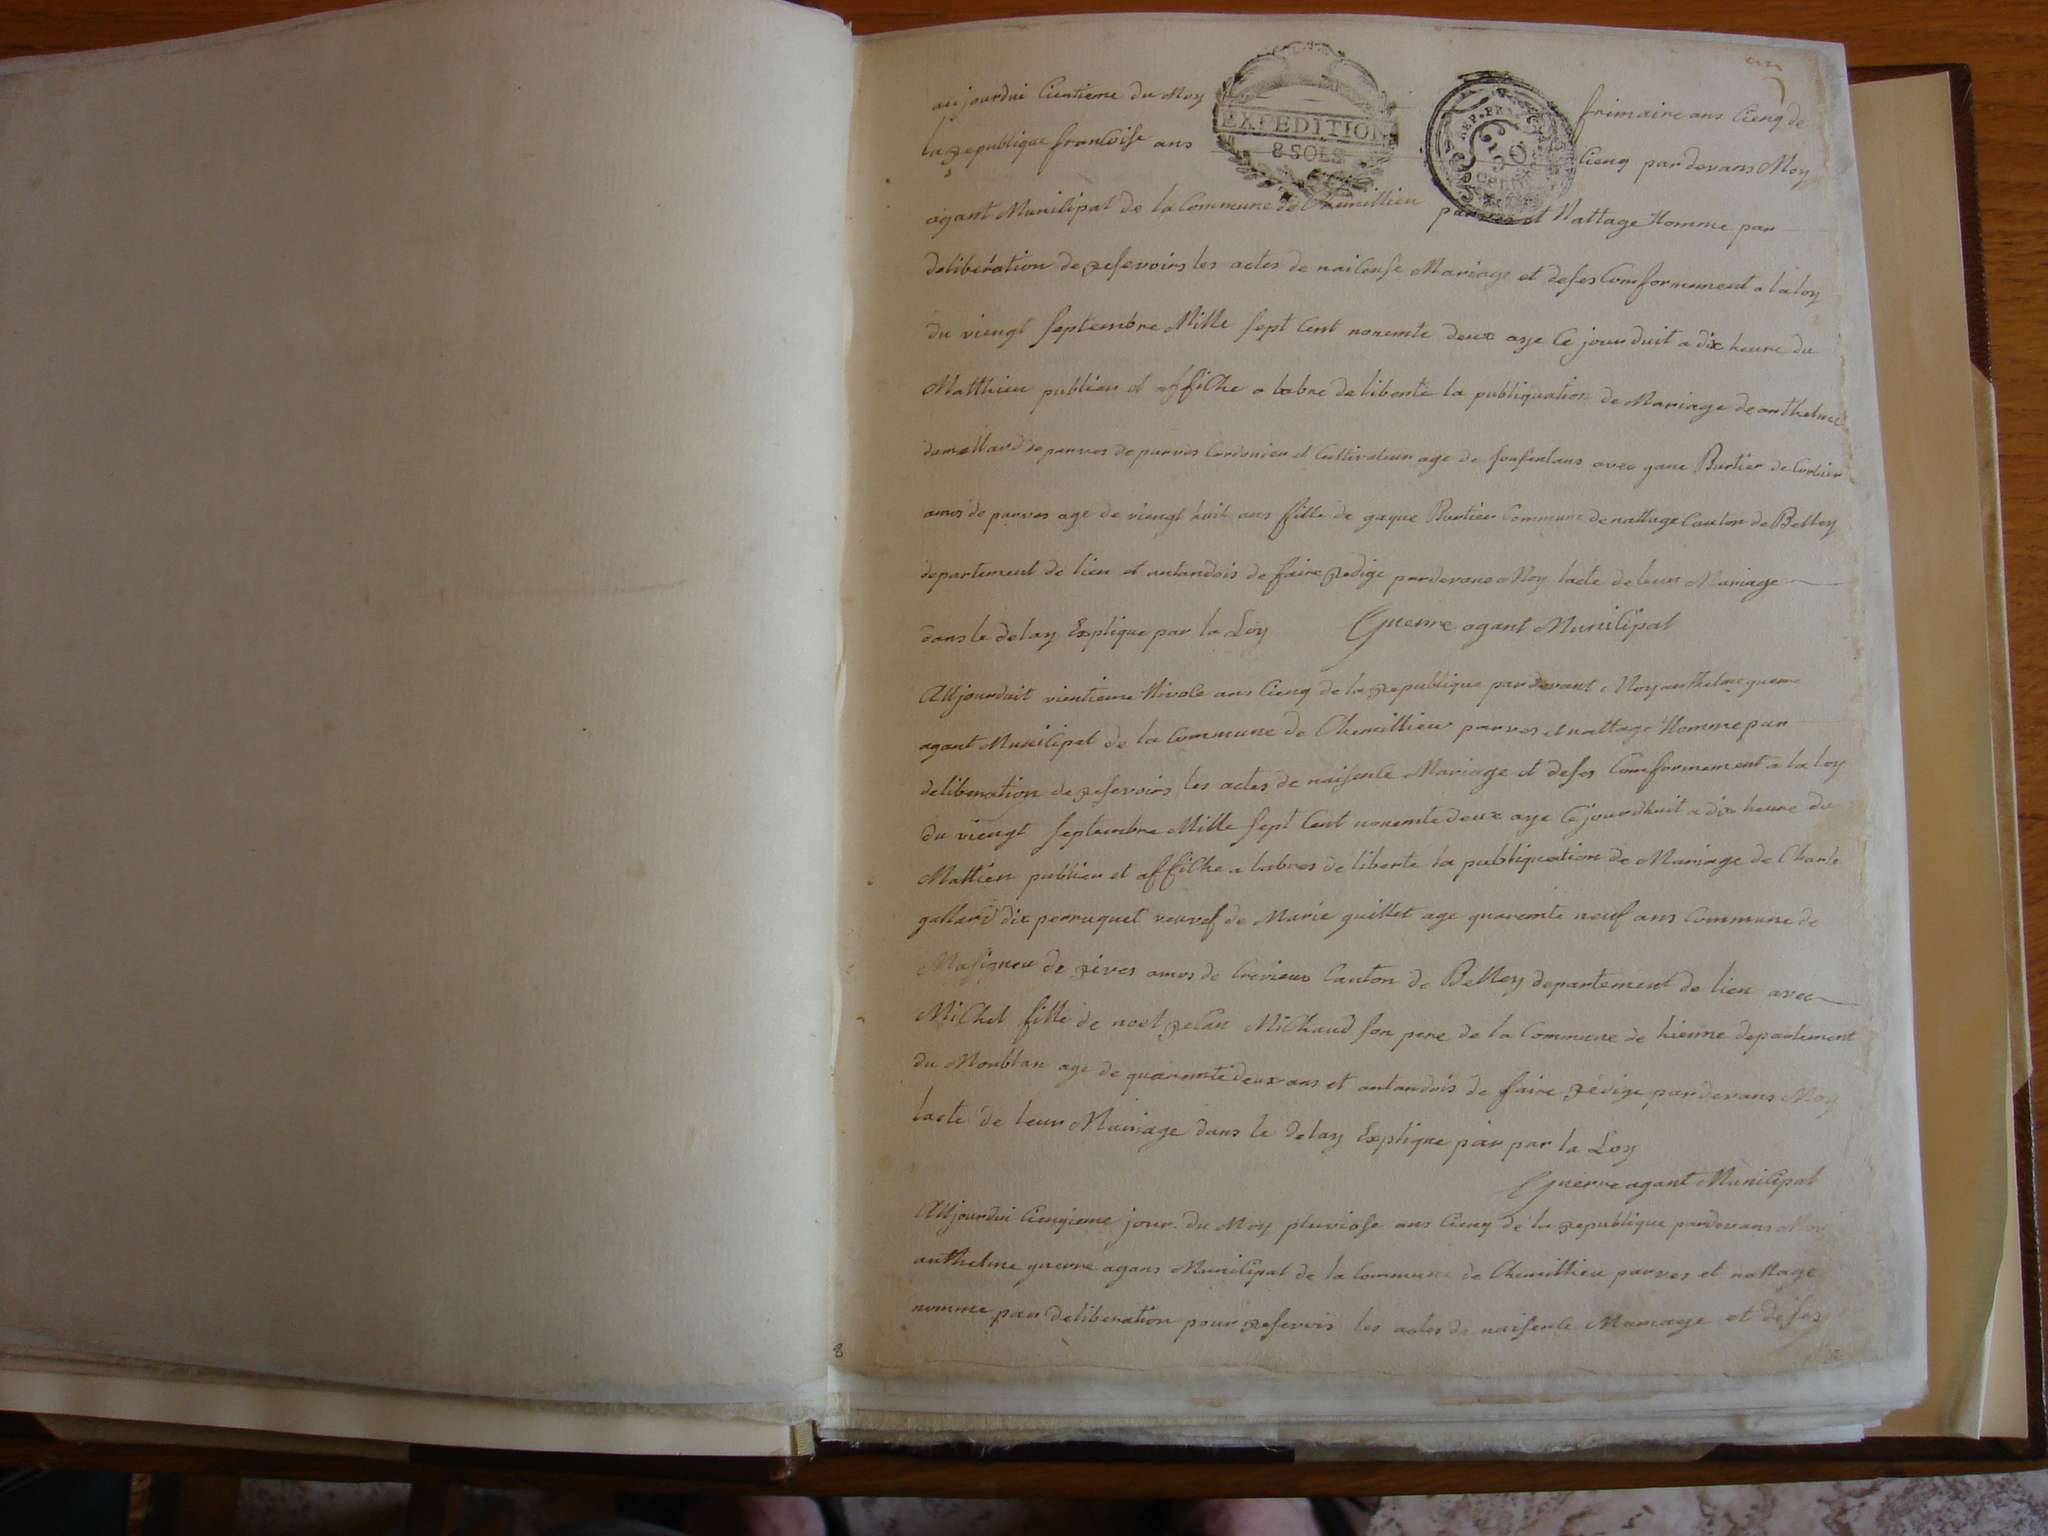 aujourdui Cientieme du Moy frimaire ans Cienq de
EXPEDITION
8 SOLS
REP. FRANC
la republique francoise ans Cienq par devans Moy
agant Municipal de la Commune de Chemillieu parves et Nattage Nomme par
deliberation de resevoirs les actes de naicense Mariage et deses Comformement a la loy
du viengt septembre Mille sept Cent nonemte deux aye Ce jourduit a dix heure du
Matthien publier et affiche a labre de liberté la publiquation de Mariage de anthelme
de parves Cordonier et Cultivateur age de ans avec gane Burtier de
amos de parves age de viengt huit ans fille de gaque Burtier Commune de nattage Canton de Belley
departement de lien et antandois de faire redige pardevans Moy lacte de leur Mariage
dans le delay Explique par la Loy Guerre agant Municipal
Aujourduit vientieme Nivose ans Cienq de la republique pardevant Moy anthelme guerre
agant Municipal de la Commune de Chemillieu parves et nattage Nomme par
deliberation de resevoirs les actes de naisence Mariage et deses Comformement a la loy
du viengt septembre Mille sept Cent nonemte deux aye Cejourdhuit a dix heure du
Mattien publier et affiche a labres de liberte la publiquation de Mariage de Charle
gallard dix perruquet veuvef de Marie guillet age quaremte neuf ans Commune de
Masigneu de rives amos de Crevieux Canton de Belley departement de lien avec
Michel fille de noel Michaud son pere de la Commune de hienne departement
du Monblan age de quaremte deux ans et antandois de faire redige pardevans Moy
lacte de leur Mariage dans le delay Explique par par la Loy
Guerre agant Municipal
Aujourdui Cienqieme jour du Moy pluviose ans Cienq de la republique pardevans Moi
anthelme guerre agans Municipal de la Commune de Chemillieu parves et nattage
nomme par deliberation pour resevois les actes de naisence Mariage et deses
8